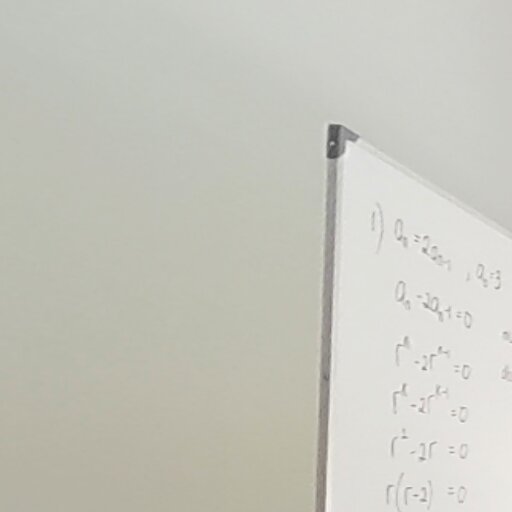 1) aₙ = 2aₙ₋₁ , a₀ = 3
aₙ - 2aₙ₋₁ = 0
rⁿ - 2rⁿ⁻¹ = 0
rᴷ - 2rᴷ⁻¹ = 0
r² - 2r = 0
r(r-2) = 0